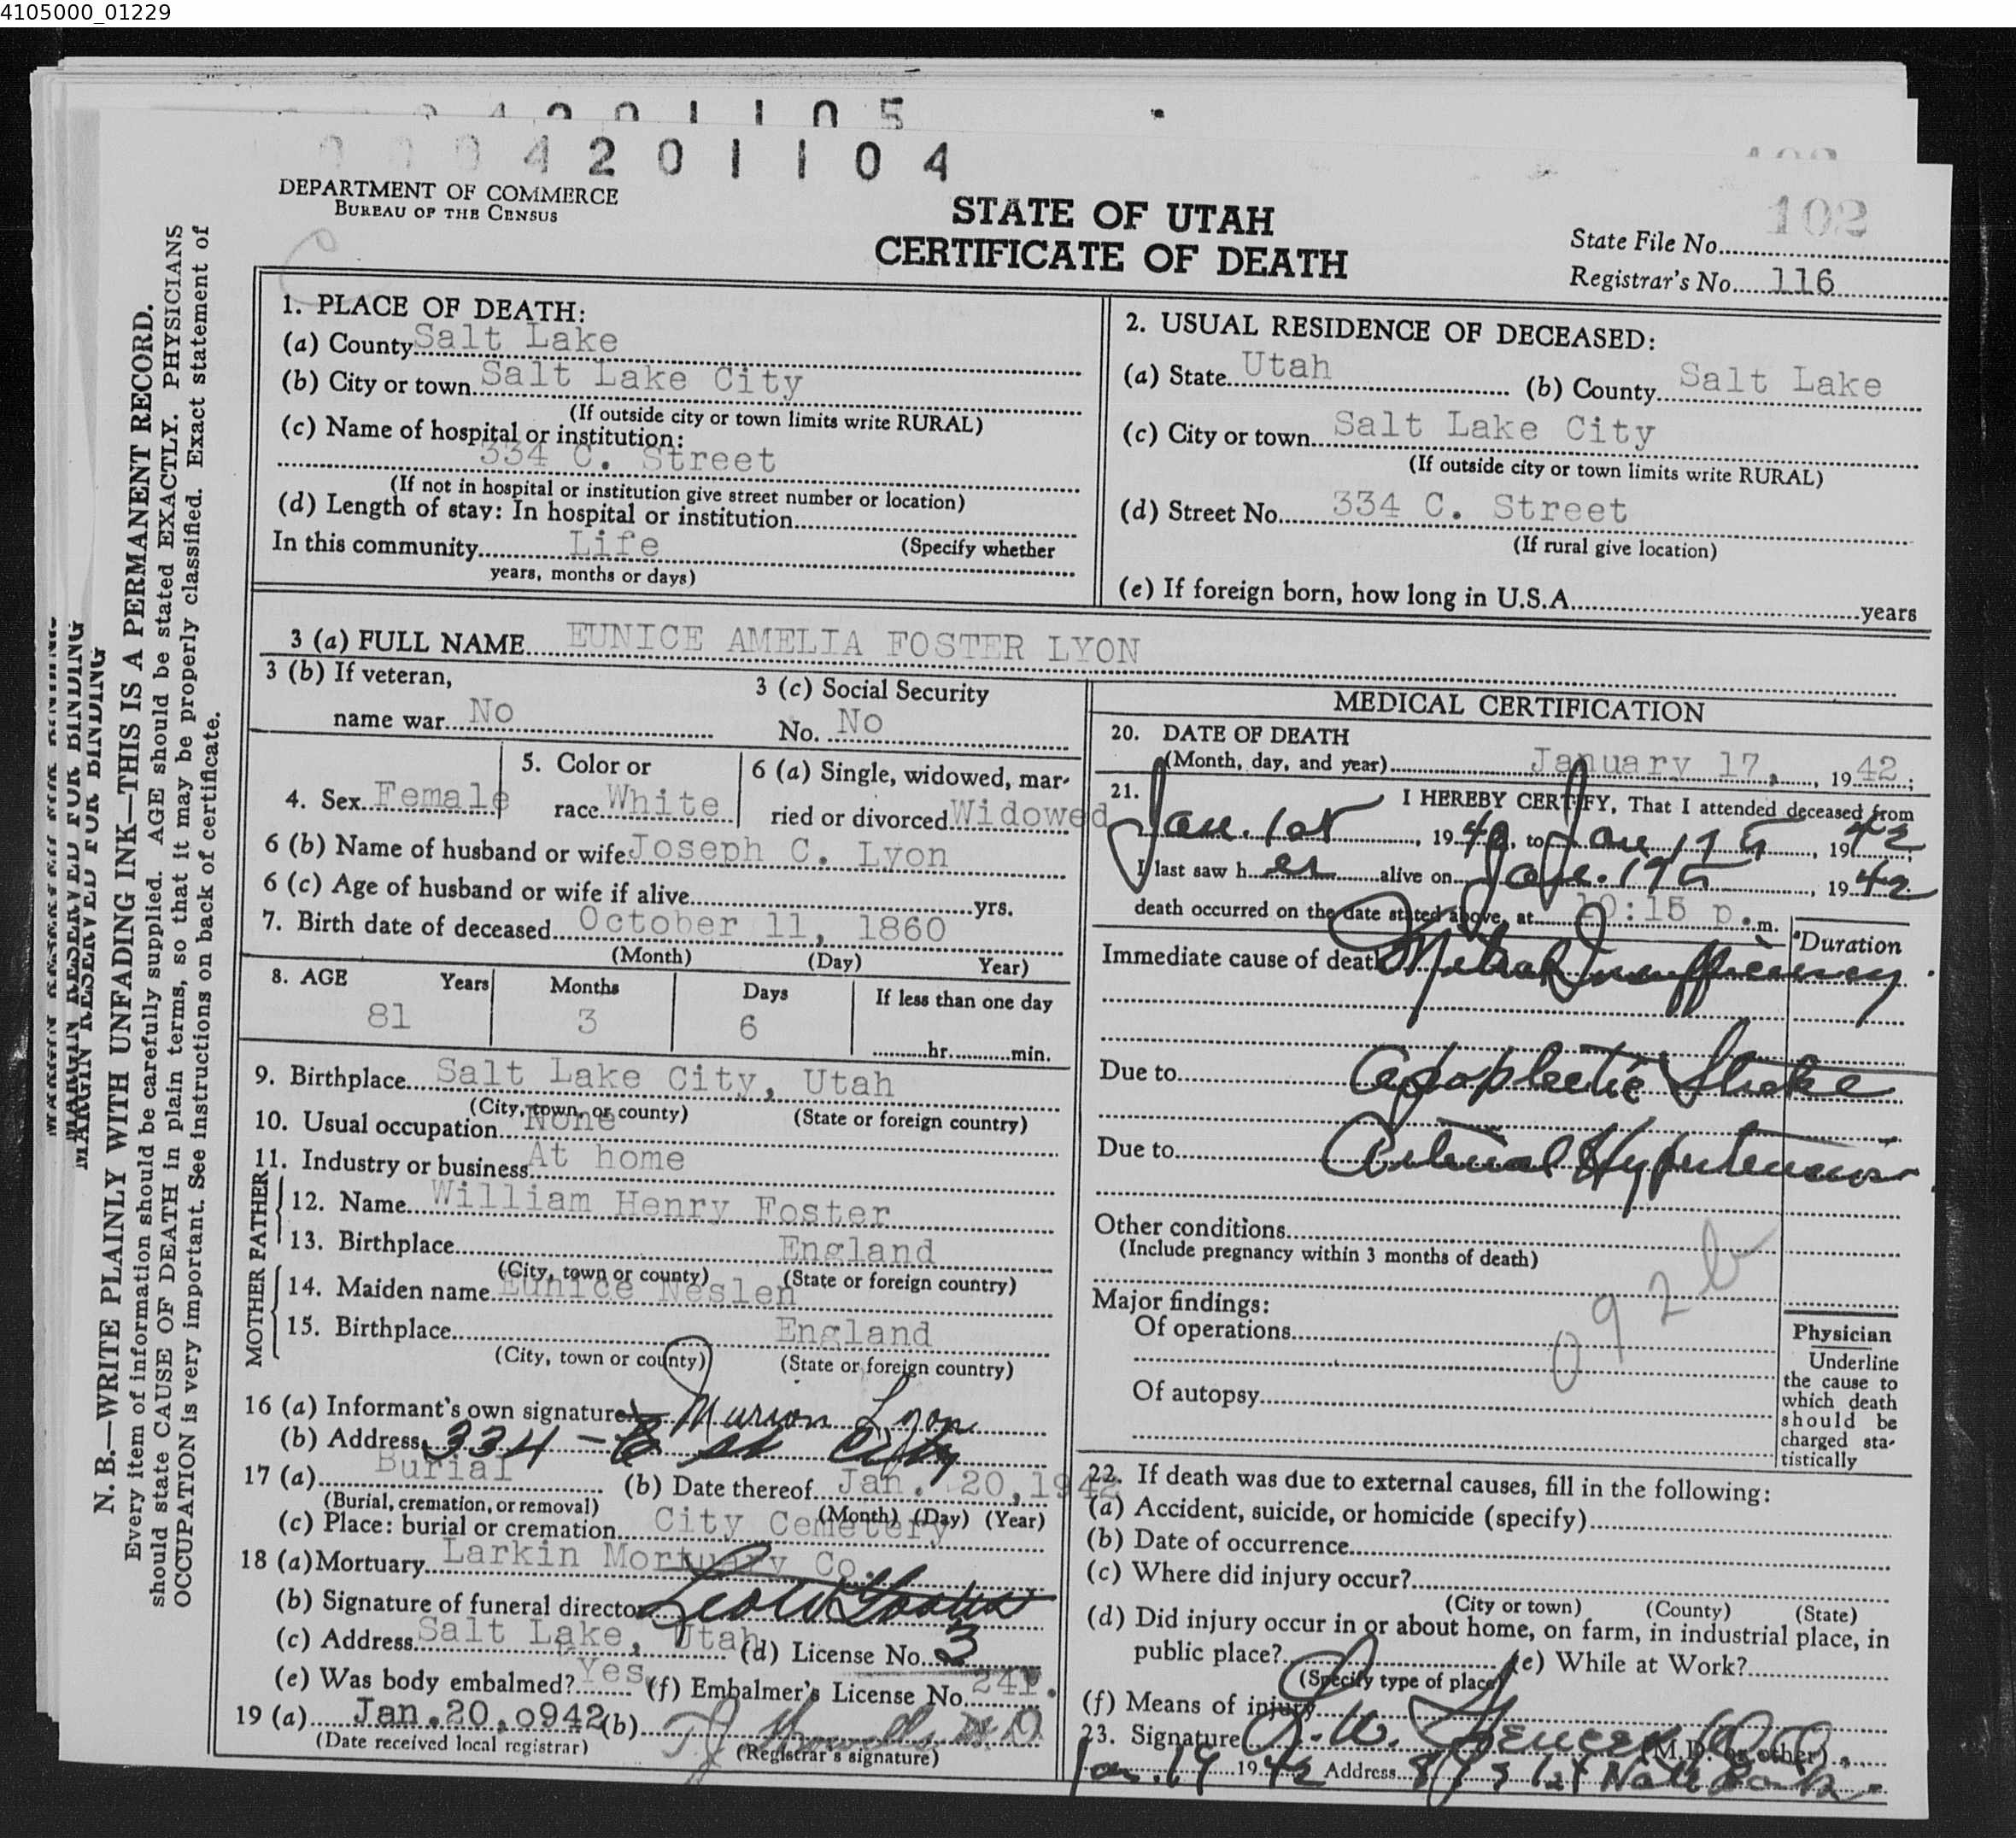 4105000_01229
4201105
0004201104
DEPARTMENT OF COMMERCE
BUREAU OF THE CENSUS
STATE OF UTAH
CERTIFICATE OF DEATH
102
State File No.
Registrar's No. 116
MARGIN RESERVED FOR BINDING
N. B.—WRITE PLAINLY WITH UNFADING INK—THIS IS A PERMANENT RECORD.
Every item of information should be carefully supplied. AGE should be stated EXACTLY. PHYSICIANS
should state CAUSE OF DEATH in plain terms, so that it may be properly classified. Exact statement of
OCCUPATION is very important. See instructions on back of certificate.
1. PLACE OF DEATH:
(a) County Salt Lake
(b) City or town Salt Lake City
(If outside city or town limits write RURAL)
(c) Name of hospital or institution:
334 C. Street
(If not in hospital or institution give street number or location)
(d) Length of stay: In hospital or institution
In this community Life (Specify whether
years, months or days)
2. USUAL RESIDENCE OF DECEASED:
(a) State Utah (b) County Salt Lake
(c) City or town Salt Lake City
(If outside city or town limits write RURAL)
(d) Street No. 334 C. Street
(If rural give location)
(e) If foreign born, how long in U.S.A. years
3 (a) FULL NAME EUNICE AMELIA FOSTER LYON
3 (b) If veteran,
name war No
3 (c) Social Security
No. No
4. Sex Female
5. Color or
race White
6 (a) Single, widowed, mar-
ried or divorced Widowed
6 (b) Name of husband or wife Joseph C. Lyon
6 (c) Age of husband or wife if alive yrs.
7. Birth date of deceased October 11, 1860
(Month) (Day) Year)
8. AGE Years Months Days If less than one day
81 3 6
hr. min.
9. Birthplace Salt Lake City, Utah
(City, town, or county) (State or foreign country)
10. Usual occupation None
11. Industry or business At home
FATHER
12. Name William Henry Foster
13. Birthplace England
(City, town or county) (State or foreign country)
MOTHER
14. Maiden name Eunice Neslen
15. Birthplace England
(City, town or county) (State or foreign country)
16 (a) Informant's own signature Marion Lyon
(b) Address 334 - C St City
17 (a) Burial (b) Date thereof Jan. 20, 1942
(Burial, cremation, or removal) (Month) (Day) (Year)
(c) Place: burial or cremation City Cemetery
18 (a) Mortuary Larkin Mortuary Co.
(b) Signature of funeral director
(c) Address Salt Lake, Utah (d) License No. 3
(e) Was body embalmed? Yes (f) Embalmer's License No. 241.
19 (a) Jan. 20, 0942 (b)
(Date received local registrar) (Registrar's signature)
MEDICAL CERTIFICATION
20. DATE OF DEATH
(Month, day, and year) January 17, 1942;
21. I HEREBY CERTIFY, That I attended deceased from
Jan. 1st, 1940, to Jan 17th, 1942;
I last saw her alive on Jan. 17th, 1942
death occurred on the date stated above, at 10:15 p.m.
Duration
Immediate cause of death Mitral Insufficiency.
Due to Apoplectic Stroke
Due to Arterial Hypertension
Other conditions
(Include pregnancy within 3 months of death)
092b
Major findings:
Of operations
Of autopsy
Physician
Underline
the cause to
which death
should be
charged sta-
tistically
22. If death was due to external causes, fill in the following:
(a) Accident, suicide, or homicide (specify)
(b) Date of occurrence
(c) Where did injury occur?
(City or town) (County) (State)
(d) Did injury occur in or about home, on farm, in industrial place, in
public place? (e) While at Work?
(Specify type of place)
(f) Means of injury
23. Signature (M.D. or other)
Jan. 19 1942 Address 1st Natl Bank